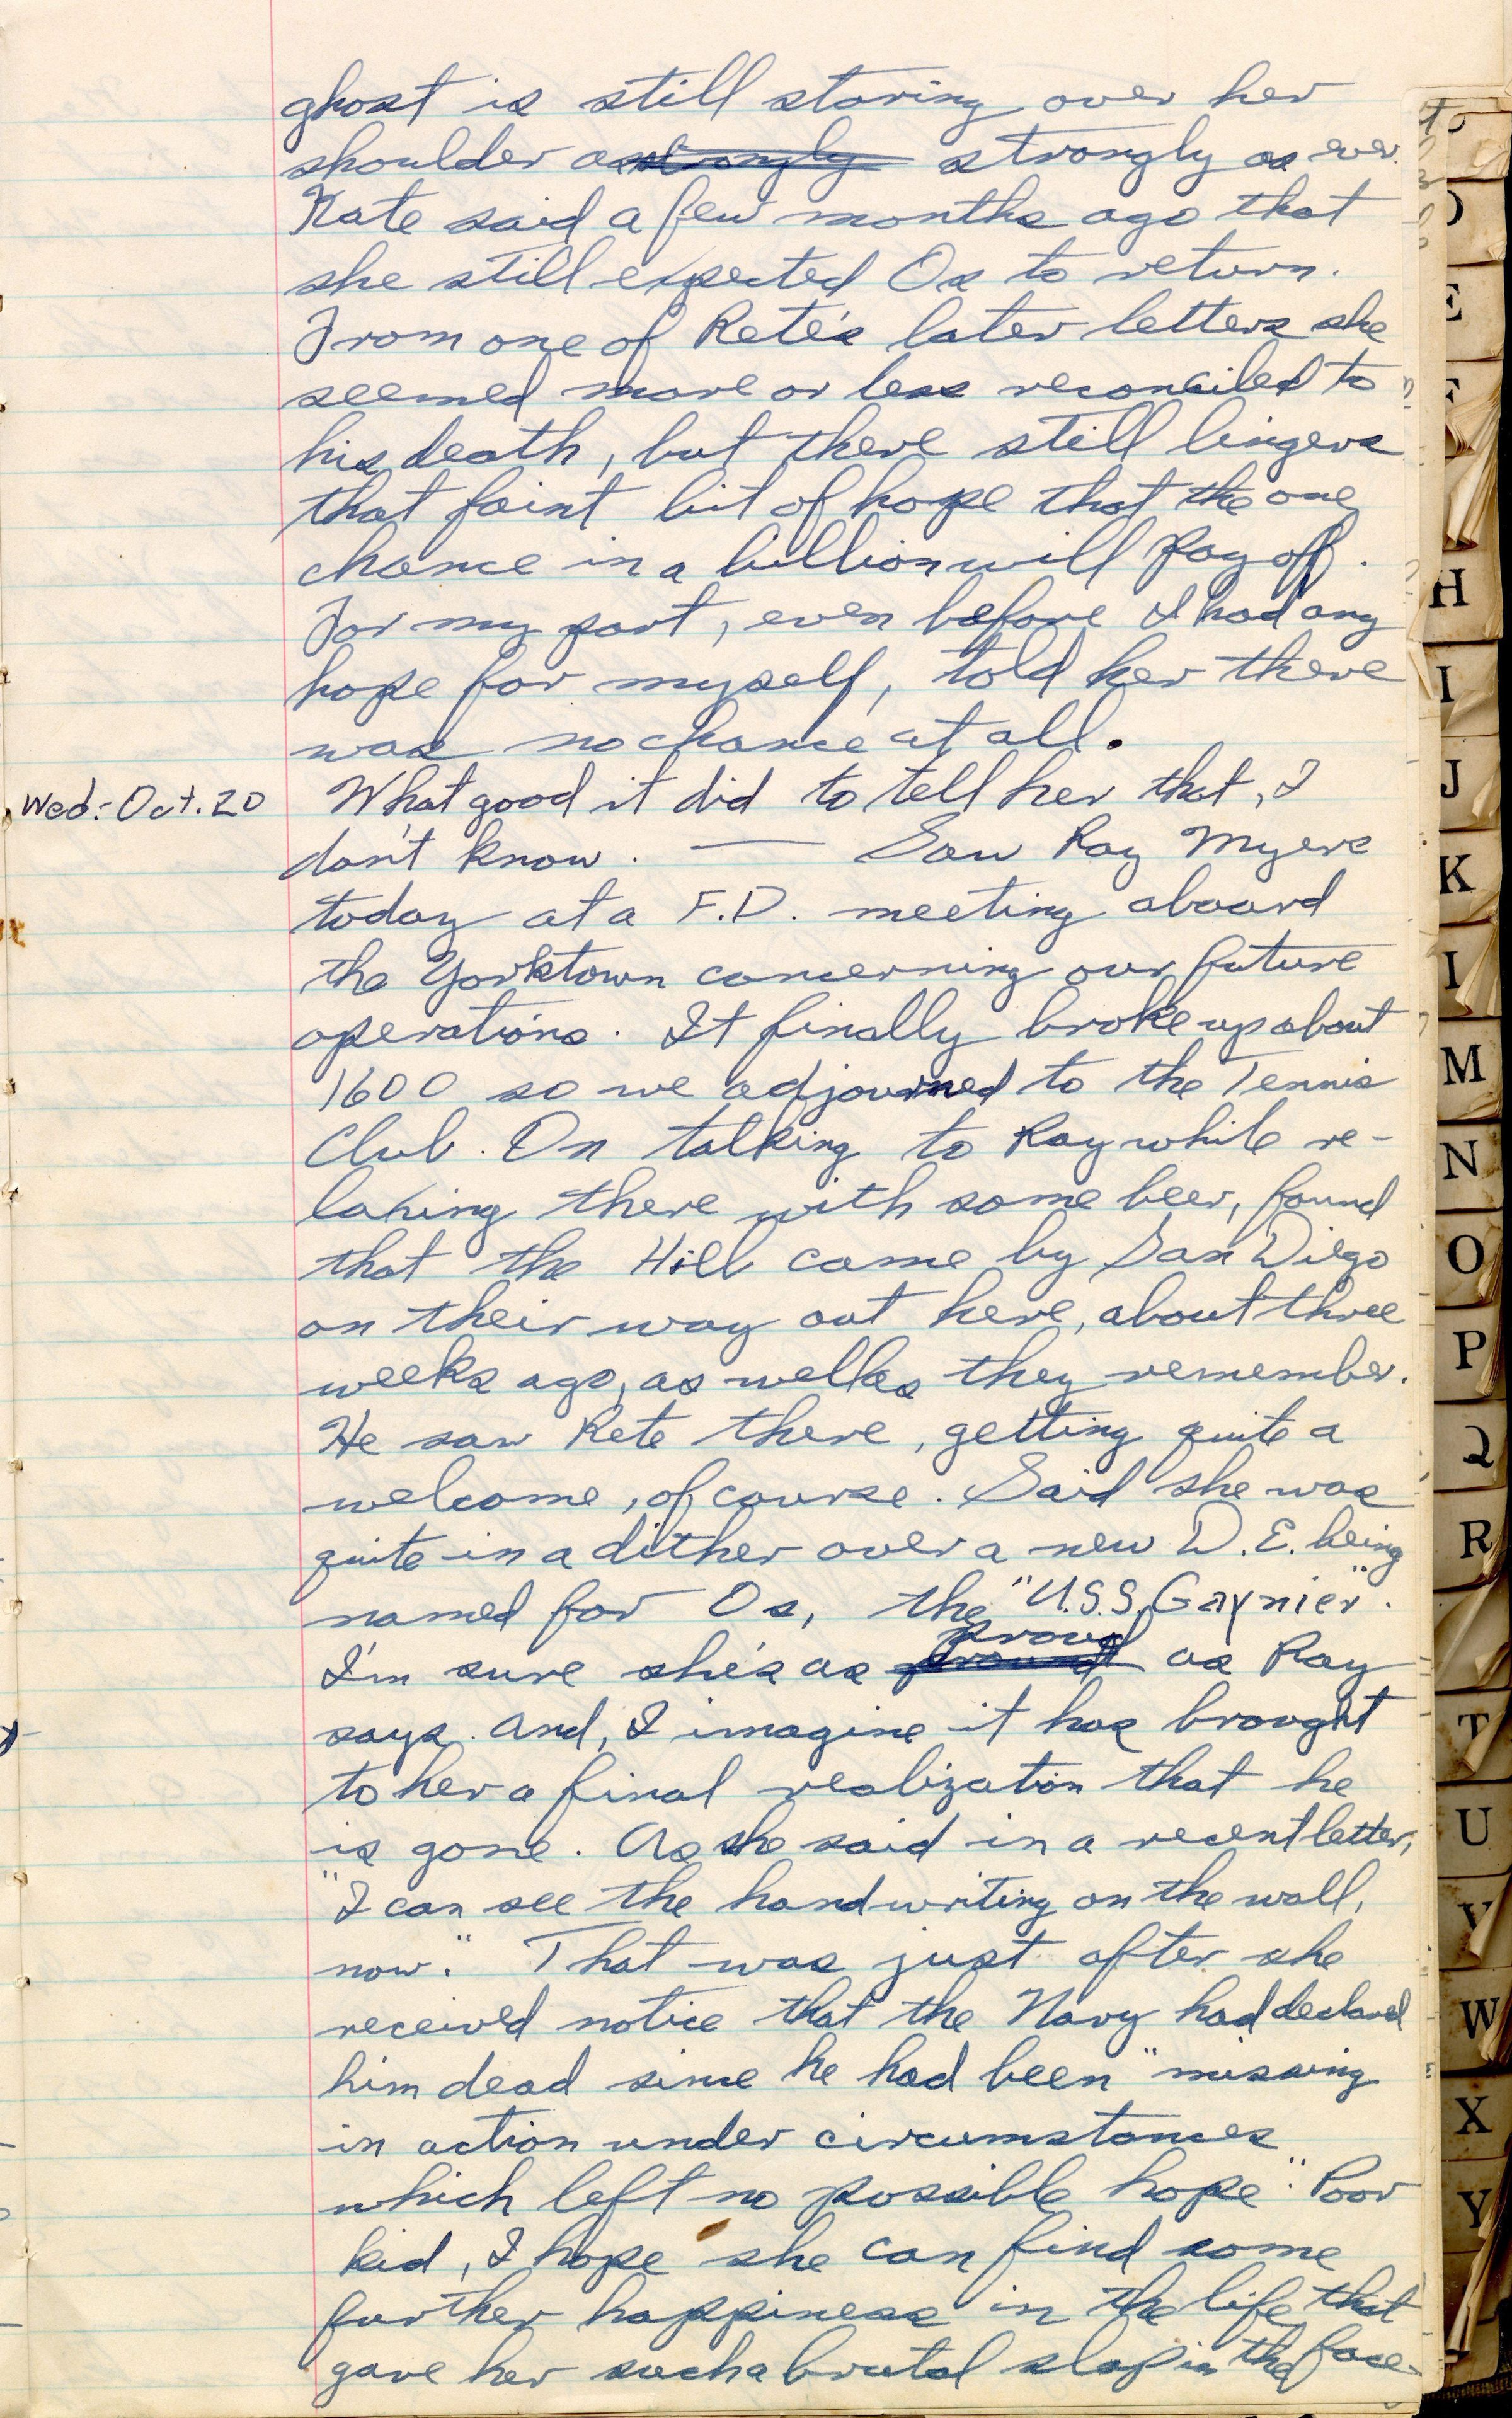 ghost is still staring over her
shoulder as strongly strongly as ever.
Kate said a few months ago that
she still expected Os to return.
From one of Rete's later letters she
seemed more or less reconciled to
his death, but there still lingers
that faint bit of hope that the one
chance in a billion will pay off.
For my part, even before I had any
hope for myself, told her there
was no chance at all.
Wed: Oct. 20 What good it did to tell her that, I
don't know. — Saw Ray Myers
today at a F.D. meeting aboard
the Yorktown concerning our future
operations. It finally broke up about
1600 so we adjourned to the Tennis
Club. On talking to Ray while re-
laxing there with some beer, found
that the Hill came by San Diego
on their way out here, about three
weeks ago, as well as they remember.
He saw Rete there, getting quite a
welcome, of course. Said she was
quite in a dither over a new D.E. being
named for Os, the "U.S.S. Gaynier".
I'm sure she's as proud as Ray
says. And, I imagine it has brought
to her a final realization that he
is gone. As she said in a recent letter,
"I can see the handwriting on the wall,
now." That was just after she
received notice that the Navy had declared
him dead since he had been "missing
in action under circumstances
which left no possible hope". Poor
kid, I hope she can find some
further happiness in the life that
gave her such a brutal slap in the face.
D
E
F
H
I
J
K
M
N
O
P
Q
R
T
U
V
W
X
Y